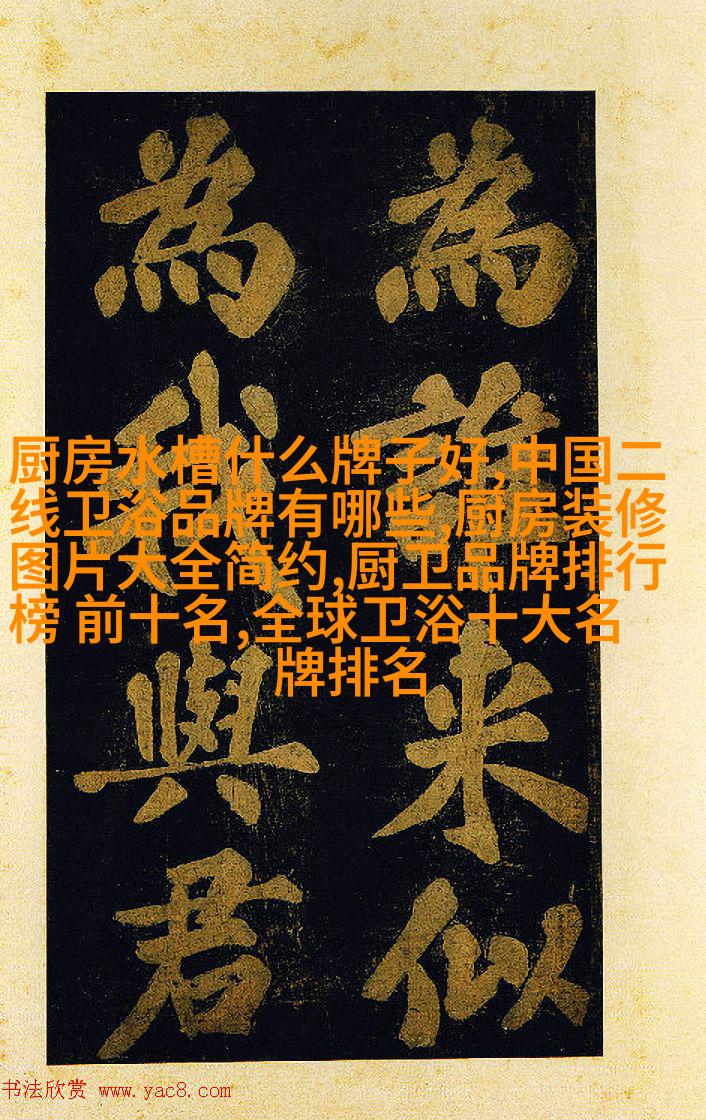 為誰来似
為我與君
厨房水槽什么牌子好,中国二
线卫浴品牌有哪些,厨房装修
图片大全简约,厨卫品牌排行
榜 前十名,全球卫浴十大名
牌排名
书法欣赏 www.yac8.com